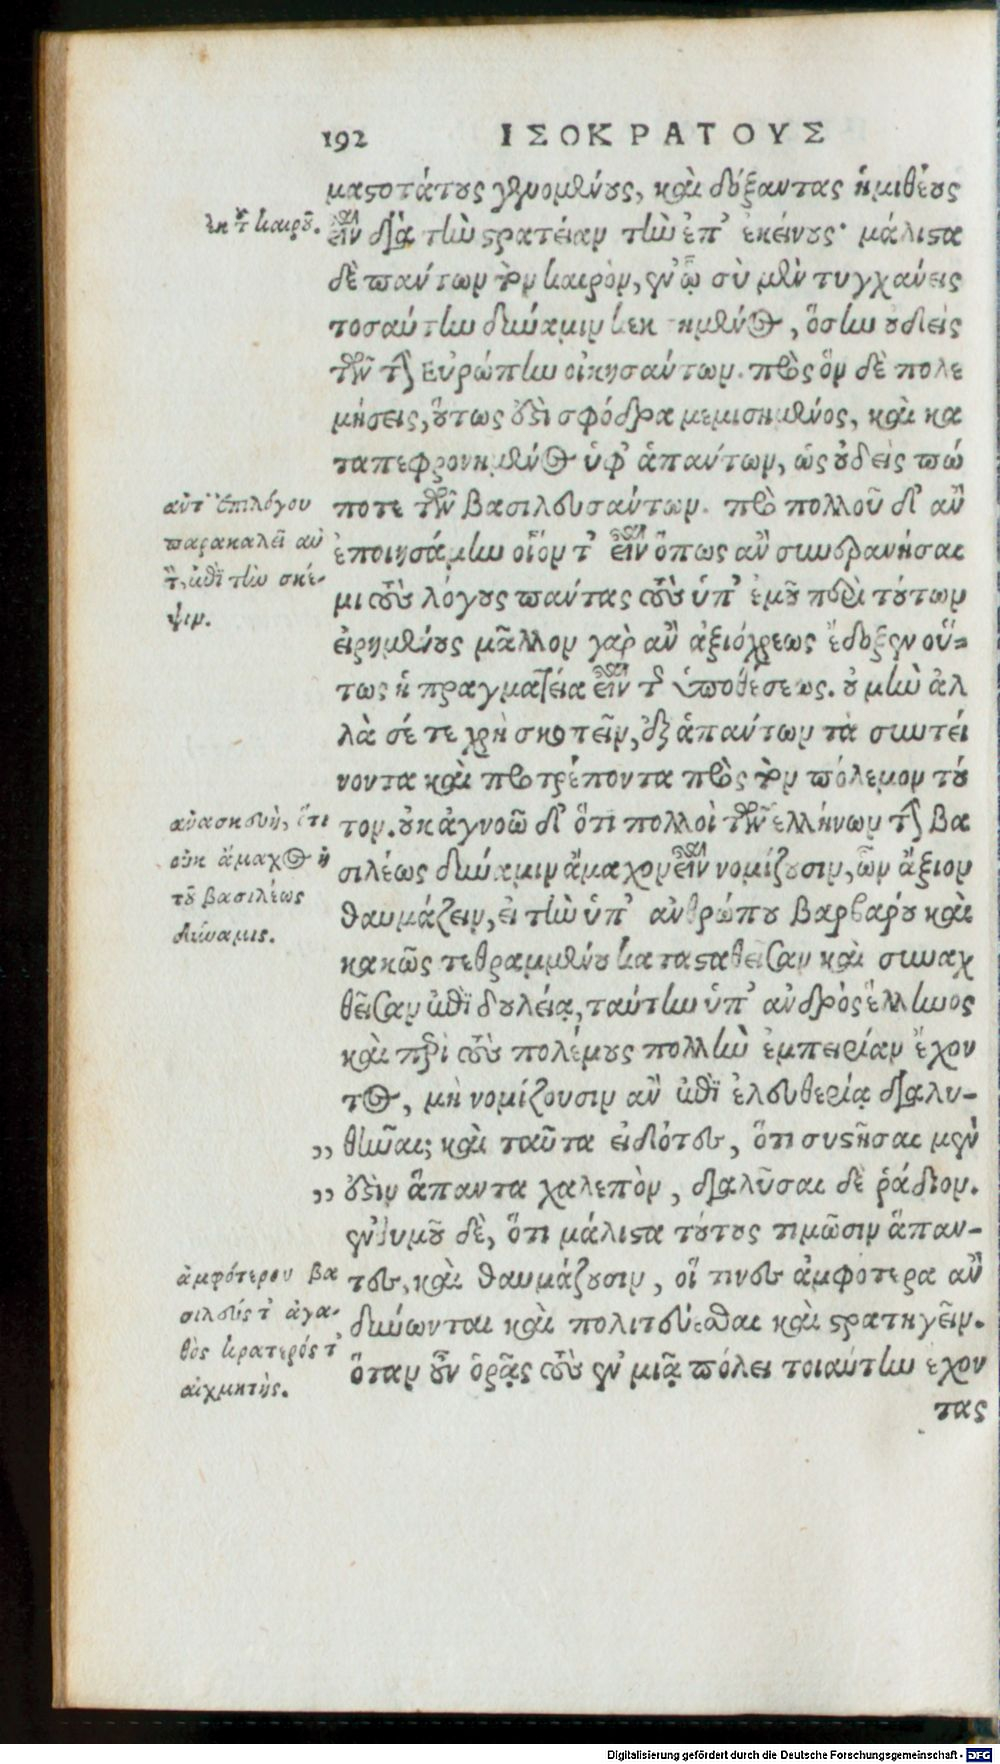 192 ΙΣΟΚΡΑΤΟΥΣ
μαϛοτάτους γενομένους, καὶ δόξαντας ἡμιθέους
ἐκ τοῦ καιροῦ.
εἶναι διὰ τὴν ϛρατείαν τὴν ἐπ’ ἐκείνους· μάλιϛα
δὲ πάντων τὸν καιρὸν, ἐν ᾧ σὺ μὲν τυγχάνεις
τοσαύτην δύναμιν κεκτημένος, ὅσην οὐδεὶς
τῶν τὴν Εὐρώπην οἰκησάντων. πρὸς ὃν δὲ πολε
μήσεις, οὕτως ἐϛὶ σφόδρα μεμισημένος, καὶ κα
ταπεφρονημένος ὑφ’ ἁπάντων, ὡς οὐδεὶς πώ
ποτε τῶν βασιλευσάντων. πρὸ πολλοῦ δ’ ἂν
ἐποιησάμην οἷόν τ’ εἶναι ὅπως ἂν συνερανίσαι
μι τοὺς λόγους πάντας τοὺς ὑπ’ ἐμοῦ περὶ τούτων
εἰρημένους μᾶλλον γὰρ ἂν ἀξιόχρεως ἔδοξεν οὕ=
τως ἡ πραγματεία εἶναι τῆς ὑποθέσεως. οὐ μὴν ἀλ
λὰ σέ τε χρὴ σκοπεῖν, ἐξ ἁπάντων τὰ συντεί
νοντα καὶ προτρέποντα πρὸς τὸν πόλεμον τοῦ
τον. οὐκ ἀγνοῶ δ’ ὅτι πολλοὶ τῶν ἑλλήνων τὴν βα
σιλέως δύναμιν ἄμαχον εἶναι νομίζουσιν, ὧν ἄξιον
θαυμάζειν, εἰ τὴν ὑπ’ ἀνθρώπου βαρβάρου καὶ
κακῶς τεθραμμένου καταϛαθεῖσαν καὶ συναχ
θεῖσαν ἐπὶ δουλείᾳ, ταύτην ὑπ’ ἀνδρὸς ἕλληνος
καὶ περὶ τοὺς πολέμους πολλὴν ἐμπειρίαν ἔχον
τος, μὴ νομίζουσιν ἂν ἐπὶ ἐλευθερίᾳ διαλυ-
,, θῆναι; καὶ ταῦτα εἰδότες, ὅτι συϛῆσαι μὲν
,, ἐϛὶν ἅπαντα χαλεπὸν, διαλῦσαι δὲ ῥάδιον.
ἐνθυμοῦ δὲ, ὅτι μάλιϛα τούτους τιμῶσιν ἅπαν-
τες, καὶ θαυμάζουσιν, οἵ τινες ἀμφότερα ἂν
δύνωνται καὶ πολιτεύεσθαι καὶ ϛρατηγεῖν.
ὅταν οὖν ὁρᾷς τοὺς ἐν μιᾷ πόλει τοιαύτην ἔχον
τας
παρακαλεῖ
τὴν σκέ-
ψιν.
ἀνασκευὴ, ὅτι
οὐκ ἄμαχος ἡ
τοῦ βασιλέως
δύναμις.
ἀμφότερον βα
σιλεύς τ’ ἀγα-
θὸς κρατερός τ’
αἰχμητής.
Digitalisierung gefördert durch die Deutsche Forschungsgemeinschaft - DFG